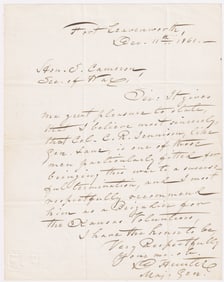 Fort Leavenworth,
Dec. 11th 1861.
Hon. S. Cameron,
Sec. of War,
Sir: It gives
me great pleasure to state,
that I believe most sincerely
that Col. C. R. Jennison, like
Gen. Lane, is one of those
men particularly fitted for
bringing this war to a successful
termination, and I most
respectfully recommend
him as a Brigadier for
the Kansas Volunteers,
I have the honor to be,
Very Respectfully
Your
D. Hunter
Maj. Gen.